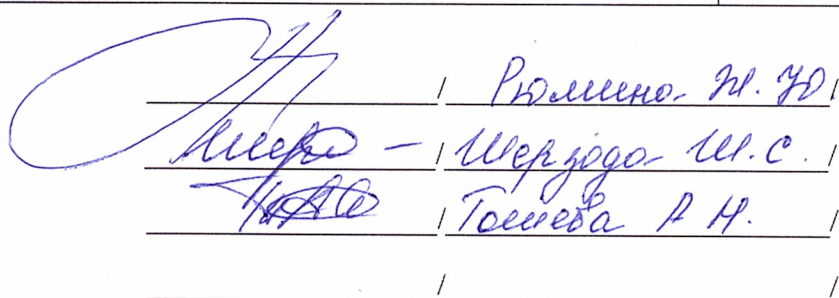 / Рюмина Ж. Ю /
/ Шерзода Ш. С. /
/ Тошева А Н. /
/ /